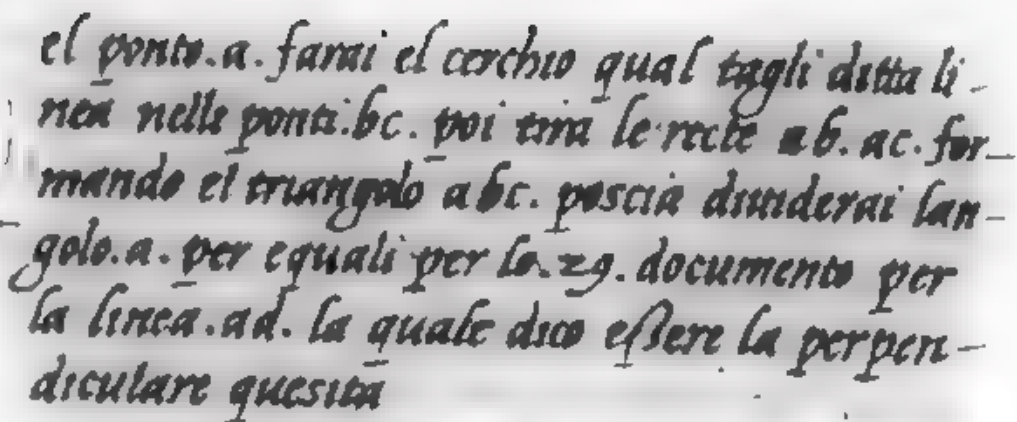 el ponto.a. farai el cerchio qual tagli ditta li-
nea nelle ponti.bc. poi tira le recte ab. ac. for-
mando el triangolo abc. poscia diuiderai lan-
golo.a. per equali per lo.29. documento per
la linea.ad. la quale dico eſsere la perpen-
diculare quesita